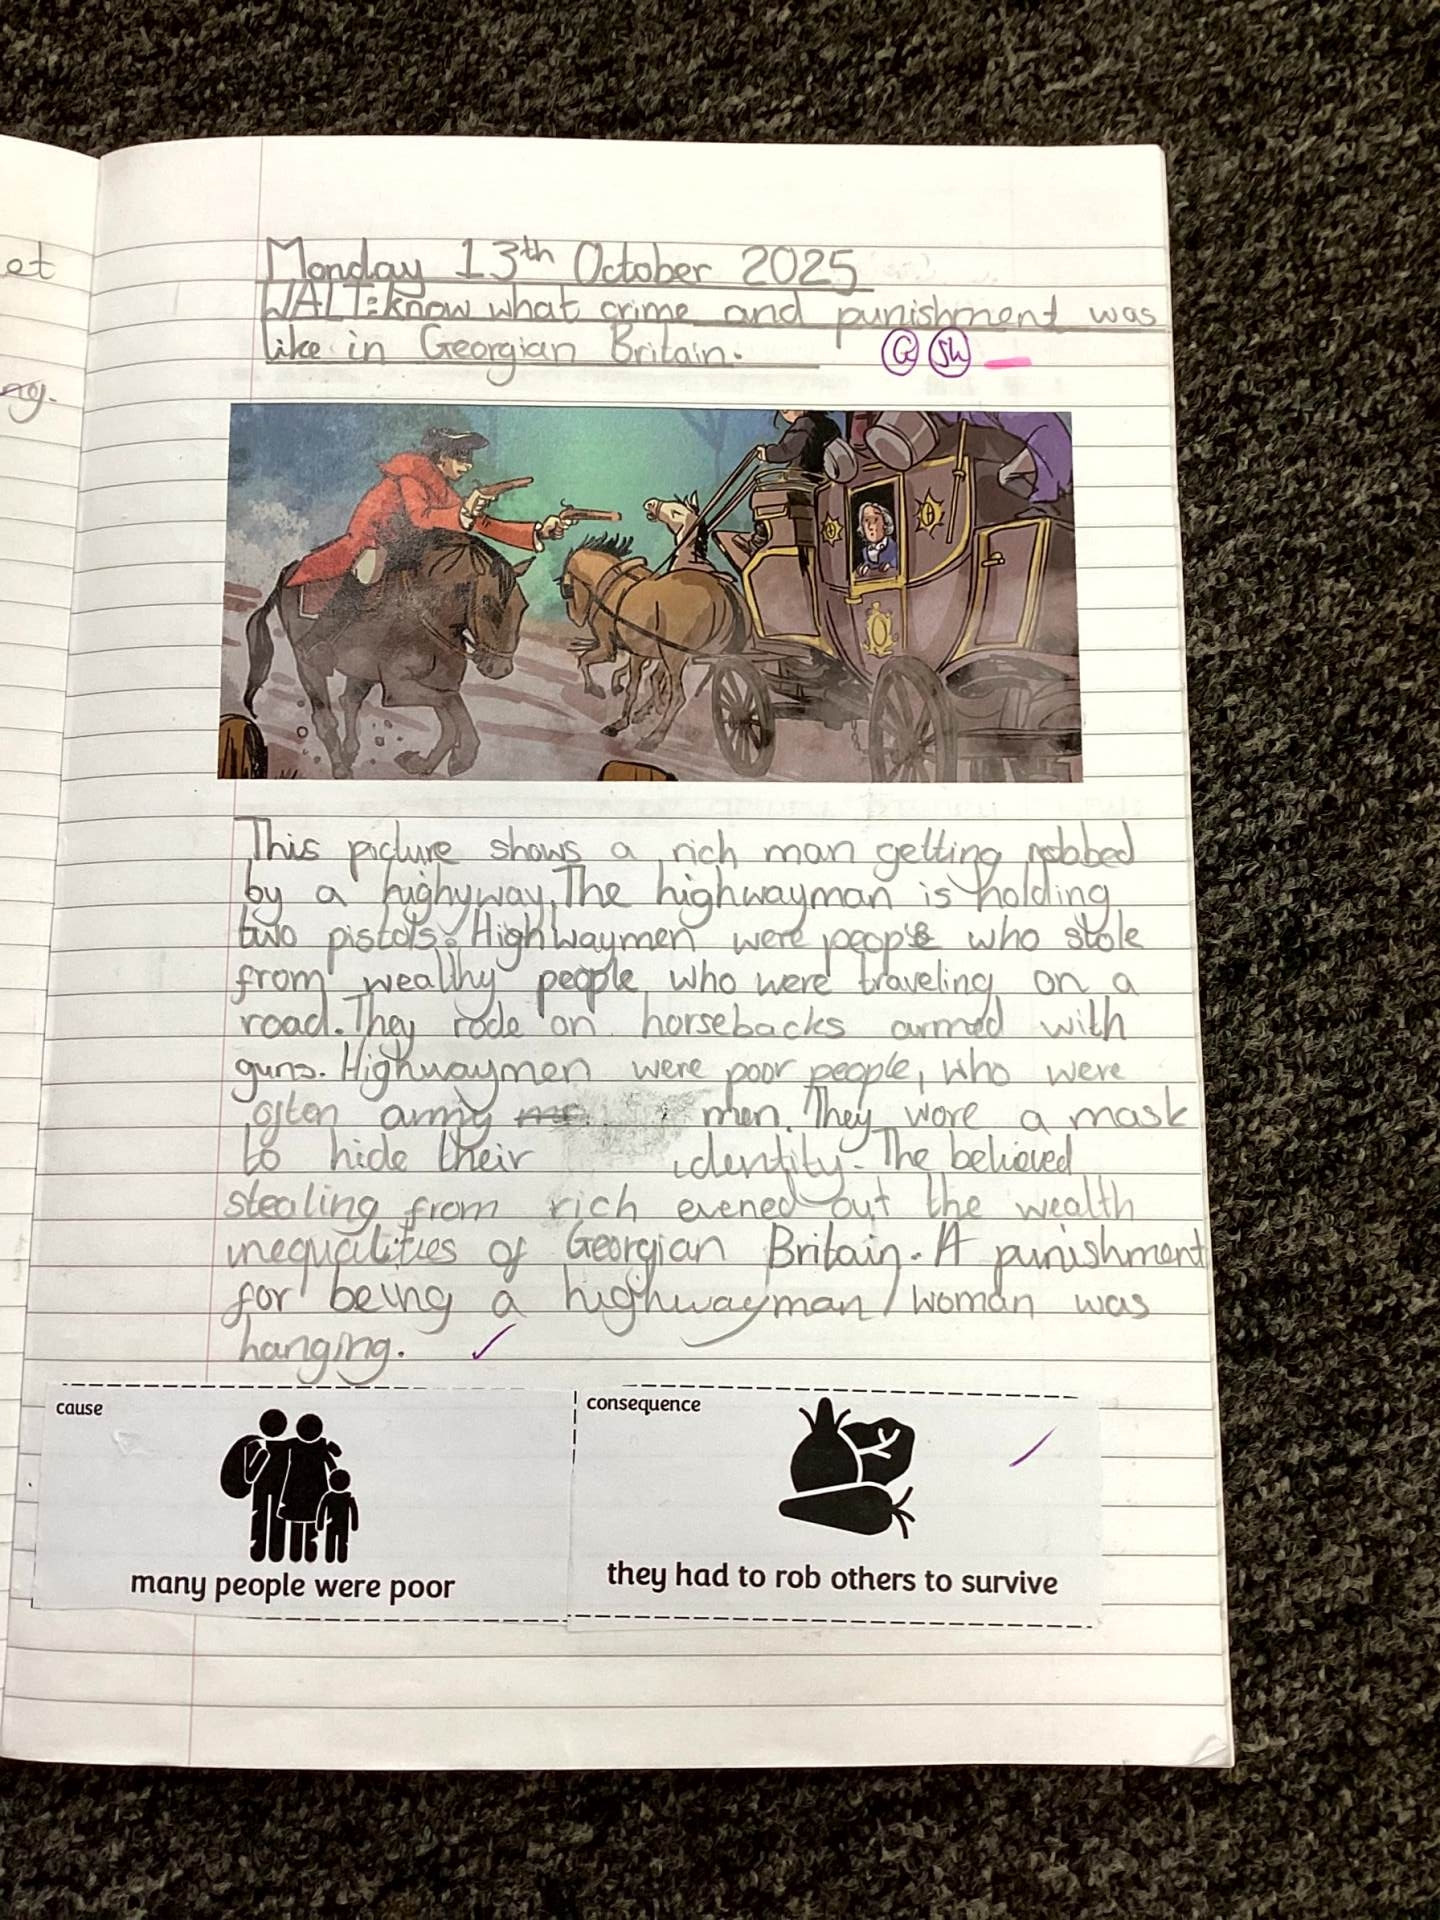 et
ng.
Monday 13th October 2025
WALT: know what crime and punishment was
like in Georgian Britain.
G Sh
This picture shows a rich man getting robbed
by a highyway. The highwayman is holding
two pistols. Highwaymen were people who stole
from wealthy people who were traveling on a
road. They rode on horsebacks armed with
guns. Highwaymen were poor people, who were
often army men. They wore a mask
to hide their identity. The believed
stealing from rich evened out the wealth
inequalities of Georgian Britain. A punishment
for being a highwayman/woman was
hanging.
cause
many people were poor
consequence
they had to rob others to survive